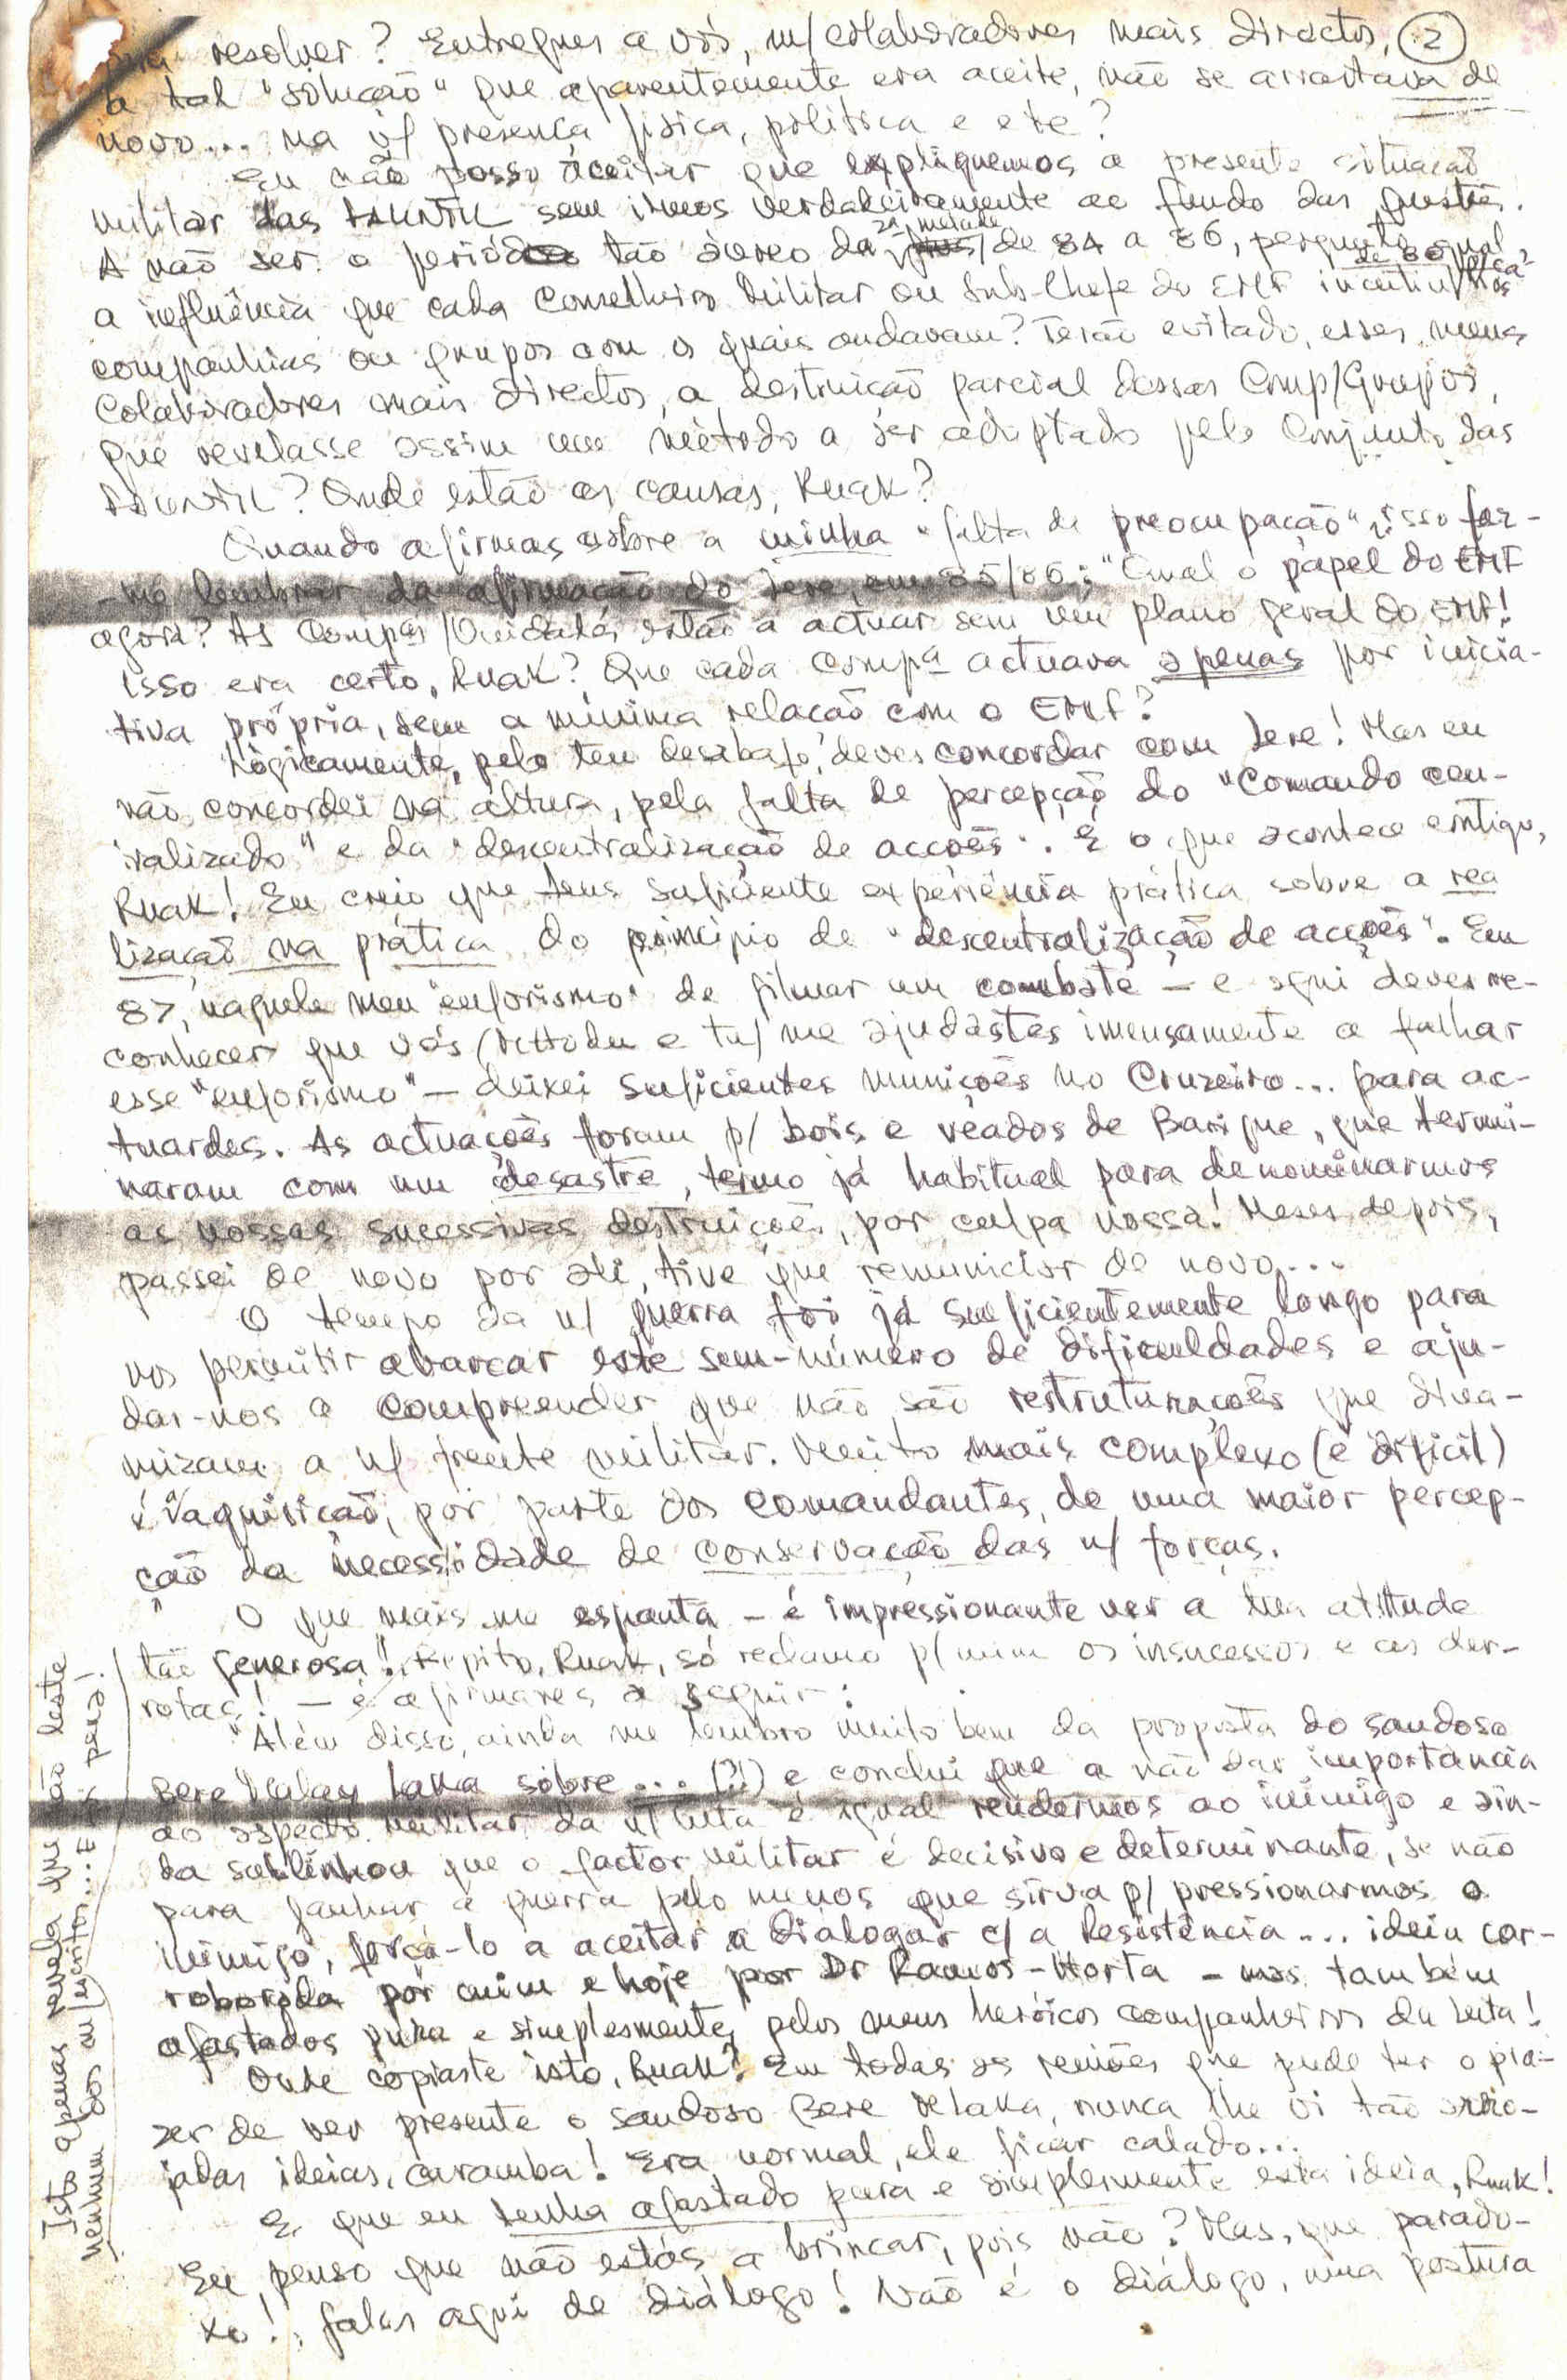 resolver? Entregues a vós, m/colaboradores mais directos, (2)
a tal "solução" que aparentemente era aceite, não se arrastava de
novo... na v/ presença física, política e etc?
Eu não posso aceitar que expliquemos a presente situação
militar das FALINTIL sem irmos verdadeiramente ao fundo das questões.
A não ser o período tão áureo da 2ª metade de 84 a 86, pergunto qual
a influência que cada Conselheiro Militar ou Sub-Chefe do EMF incutiu de 86 p/cá nas
companhias ou grupos com os quais andavam? Terão evitado, esses meus
colaboradores mais directos, a destruição parcial dessas Comp/Grupos,
que revelasse assim um método a ser adoptado pelo conjunto das
FALINTIL? Onde estão as causas, Ruak?
Quando afirmas sobre a minha "falta de preocupação", isso faz-
-me lembrar da afirmação do Sere, em 85/86: "Qual o papel do EMF
agora? As Compas/Unidades estão a actuar sem um plano geral do EMF!
Isso era certo, Ruak? Que cada compa actuava apenas por inicia-
tiva própria, sem a mínima relação com o EMF?
Lògicamente, pelo teu desabafo, deves concordar com Sere! Mas eu
não concordei na altura, pela falta de percepção do "Comando cen-
tralizado" e da "descentralização de acções". E o que acontece contigo,
Ruak! Eu creio que tens suficiente experiência prática sobre a rea
lização na prática do princípio de "descentralização de acções". Em
87, naquele meu "euforismo" de filmar um combate - e aqui deves re-
conhecer que vós (Mauhodu e tu) me ajudastes imensamente a falhar
esse "euforismo" - deixei suficientes munições no Cruzeiro... para ac-
tuardes. As actuações foram p/ bois e véados de Barique, que termi-
naram com um desastre, termo já habitual para denominarmos
as nossas sucessivas destruições, por culpa nossa! Meses depois,
passei de novo por ali, tive que remuniciar de novo...
O tempo da n/ guerra foi já suficientemente longo para
nos permitir abarcar este sem-número de dificuldades e aju-
dar-nos a compreender que não são restruturações que dina-
mizam a n/ frente militar. Muito mais complexo (e difícil)
é a aquisição, por parte dos comandantes, de uma maior percep-
ção da necessidade de conservação das n/ forças.
O que mais me espanta - é impressionante ver a tua atitude
tão generosa! Repito, Ruak, só reclamo p/ mim os insucessos e as der-
rotas! - é afirmares a seguir:
"Além disso, ainda me lembro muito bem da proposta do saudoso
Bere Malay Laka sobre... (?!) e conclui que a não dar importância
ao aspecto militar da n/ luta é igual rendermos ao inimigo e ain-
da sublinhou que o factor militar é decisivo e determinante, se não
para ganhar a guerra pelo menos que sirva p/ pressionarmos o
inimigo, forçá-lo a aceitar a dialogar c/ a Resistência... ideia cor-
roborada por mim e hoje por Dr Ramos-Horta - mas também
afastados pura e simplesmente, pelos meus heróicos companheiros da luta!
Onde copiaste isto, Ruak? Em todas as reuniões que pude ter o pra-
zer de ver presente o saudoso Bere Malaka, nunca lhe vi tão
jadas ideias, caramba! Era normal, ele ficar calado...
E que eu tenha afastado pura e simplesmente esta ideia, Ruak!
Eu penso que não estás a brincar, pois não? Mas, que parado-
xo!, falas aqui de diálogo! Não é o diálogo, uma postura
Isto apenas revela que não leste
nenhum dos m/ escritos... E é pena!